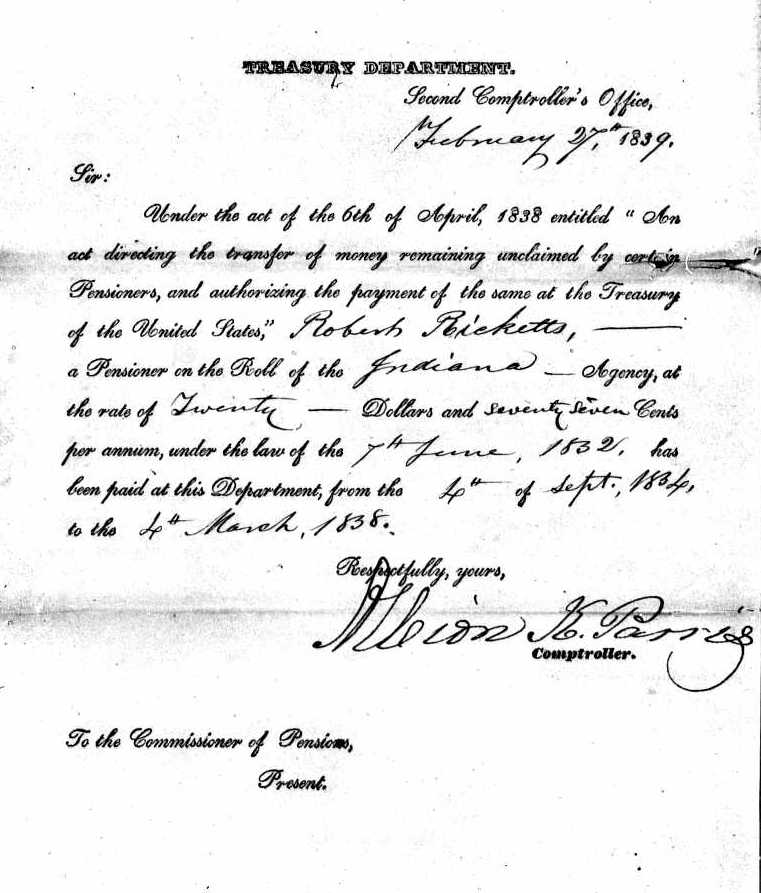 TREASURY DEPARTMENT.
Second Comptroller's Office,
February 27,th 1839.
Sir:
Under the act of the 6th of April, 1838 entitled "An
act directing the transfer of money remaining unclaimed by certain
Pensioners, and authorizing the payment of the same at the Treasury
of the United States," Robert Ricketts, —
a Pensioner on the Roll of the Indiana — Agency, at
the rate of Twenty — Dollars and seventy seven Cents
per annum, under the law of the 7th June, 1832, has
been paid at this Department, from the 4th of Sept., 1834,
to the 4th March, 1838.
Respectfully, yours,
Albion K. Parris
Comptroller.
To the Commissioner of Pensions,
Present.